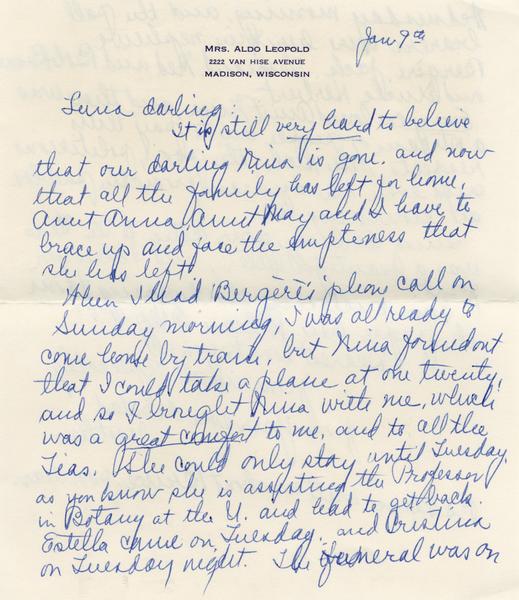 Mrs. Aldo Leopold
2222 Van Hise Avenue
Madison, Wisconsin
Jan 9th
Luna darling:
It is still very hard to believe
that our darling Nina is gone. and now
that all the family has left for home,
Aunt Anna, Aunt May and I have to
brace up and face the empteness that
she has left.
When I had Bergere's phone call on
Sunday morning, I was all ready to
come home by train, but Nina found out
that I could take a plane at one twenty,
and so I brought Nina with me, which
was a great comfort to me, and to all the
Tias. She could only stay until Tuesday.
as you know she is assisting the Professor
in Botany at the U. and had to get back.
Estella came on Tuesday. and Cristina
on Tuesday night. The funeral was on